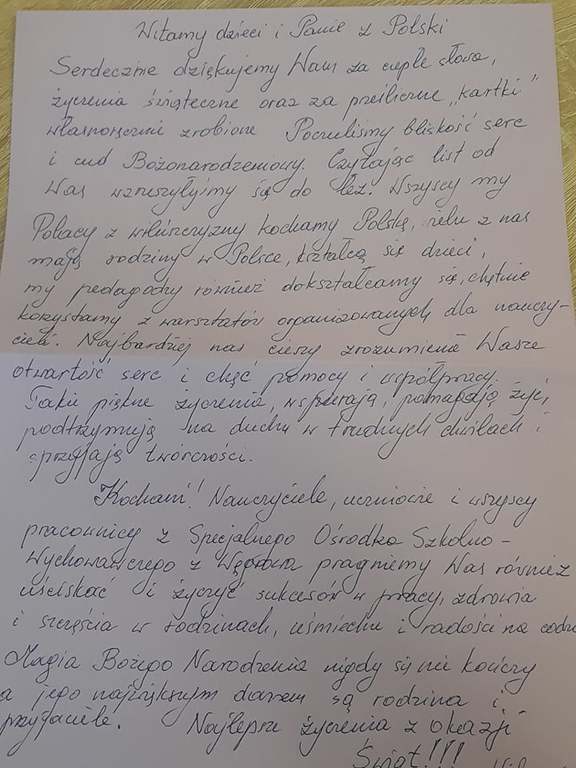 Witamy dzieci i Panie z Polski
Serdecznie dziękujemy Wam za ciepłe słowa,
życzenia świąteczne oraz za prześliczne „kartki"
własnoręcznie zrobione Poczuliśmy bliskość serc
i cud Bożonarodzeniowy. Czytając list od
Was wzruszyłyjmy są do łez. Wszyscy my
Polacy z włuszczyzny kochamy Polskę, wielu z nas
mają rodziny w Polsce, kształcą się dzieci,
my pedagodzy również dokształcamy się, chętnie
korzystamy z warsztatów organizowanych dla nauczy-
cieli. Najbardziej nas cieszy zrozumienie Wasze
otwartość serc i chęć pomocy i współpracy.
Takie piękne życzenia, wspierają, pomagają żyć,
podtrzymują na duchu w trudnych chwilach i
sprzyjają twórczości.
Kochani! Nauczyciele, uczniowie i wszyscy
pracownicy z Specjalnego Ośrodka Szkolno-
Wychowawczego z Węgrowa pragniemy Was również
uściskać i życzyć sukcesów w pracy, zdrowia
i szczęścia w rodzinach, uśmiechu i radości na codz
Magia Bożego Narodzenia nigdy się nie kończy
a jego największym darem są rodzina i
przyjaciele. Najlepsze życzenia z okazji
Świąt!!!